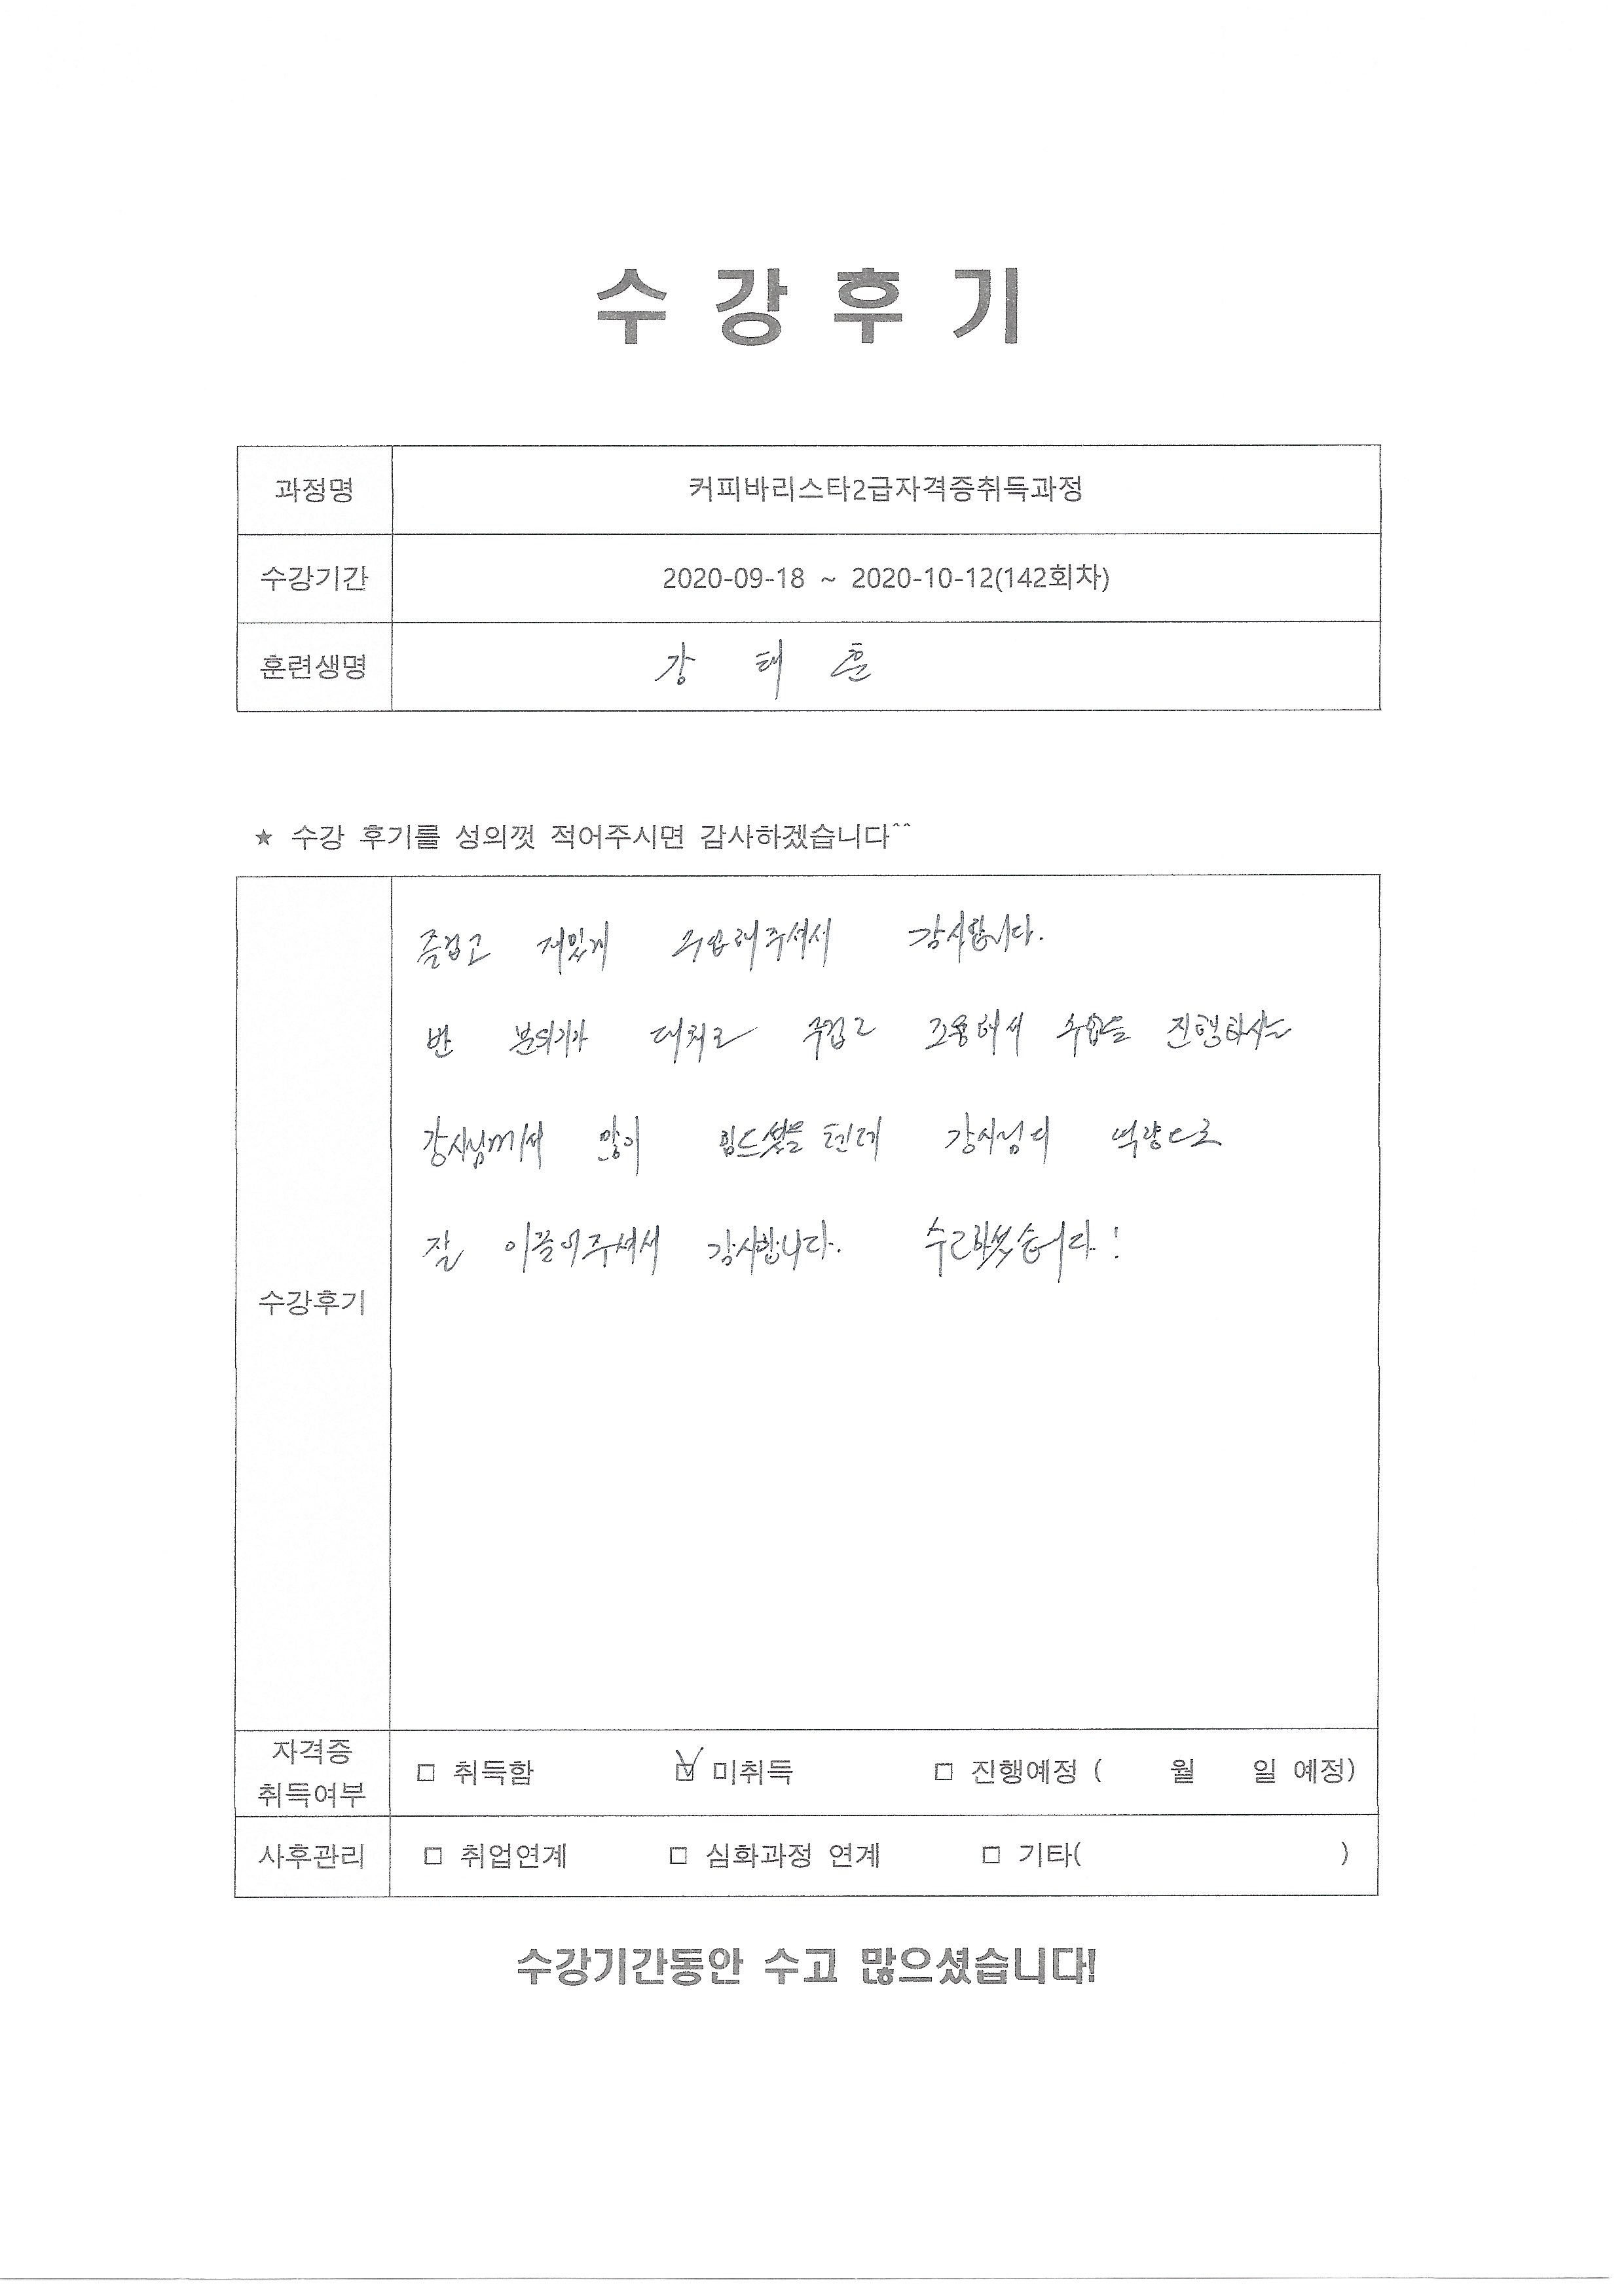 수 강 후 기
과정명 커피바리스타2급자격증취득과정
수강기간 2020-09-18 ~ 2020-10-12(142회차)
훈련생명 강 태 훈
★ 수강 후기를 성의껏 적어주시면 감사하겠습니다^^
즐겁고 재밌게 수업해주셔서 감사합니다.
반 분위기가 대체로 무겁고 조용해서 수업을 진행하시는
강사님께서 많이 힘드셨을 텐데 강사님의 역량으로
잘 이끌어주셔서 감사합니다. 수고하셨습니다!
수강후기
자격증
취득여부 □ 취득함 ☑ 미취득 □ 진행예정 ( 월 일 예정)
사후관리 □ 취업연계 □ 심화과정 연계 □ 기타( )
수강기간동안 수고 많으셨습니다!